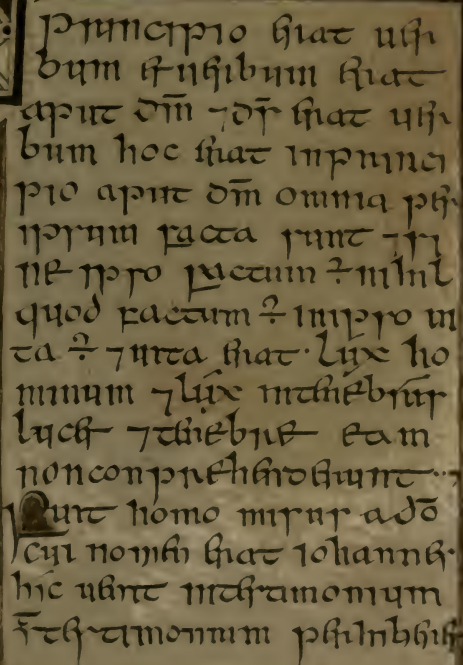 principio erat uer
bum et uerbum erat
aput dm̄ ⁊ds̄ erat uer
bum hoc erat inprinci
pio aput dm̄ omnia per
ipsum facta sunt ⁊si
ne ipso factum ÷ nihil
quod factum ÷ inipso ui
ta ÷ ⁊uita erat · lux ho
minum ⁊lux intenebris
lucet ⁊tenebre eam
nonconprehenderunt
Fuit homo misus adō
cui nomen erat iohannes
hic uenit intestimonium
s̄ testimonium perhiber